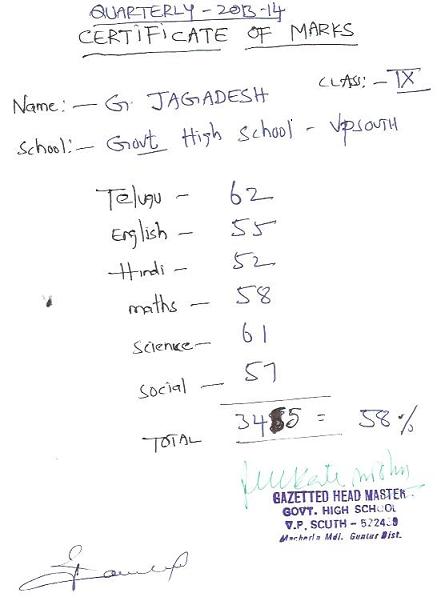 QUARTERLY - 2013-14
CERTIFICATE OF MARKS
CLASS: - IX
Name: - G. JAGADESH
School: - Govt High School - VPSOUTH
Telugu - 62
English - 55
Hindi - 52
maths - 58
Science - 61
Social - 57
TOTAL 345 = 58%
GAZETTED HEAD MASTER
GOVT. HIGH SCHOOL
V.P. SOUTH -
Macherla Mdl. Guntur Dist.